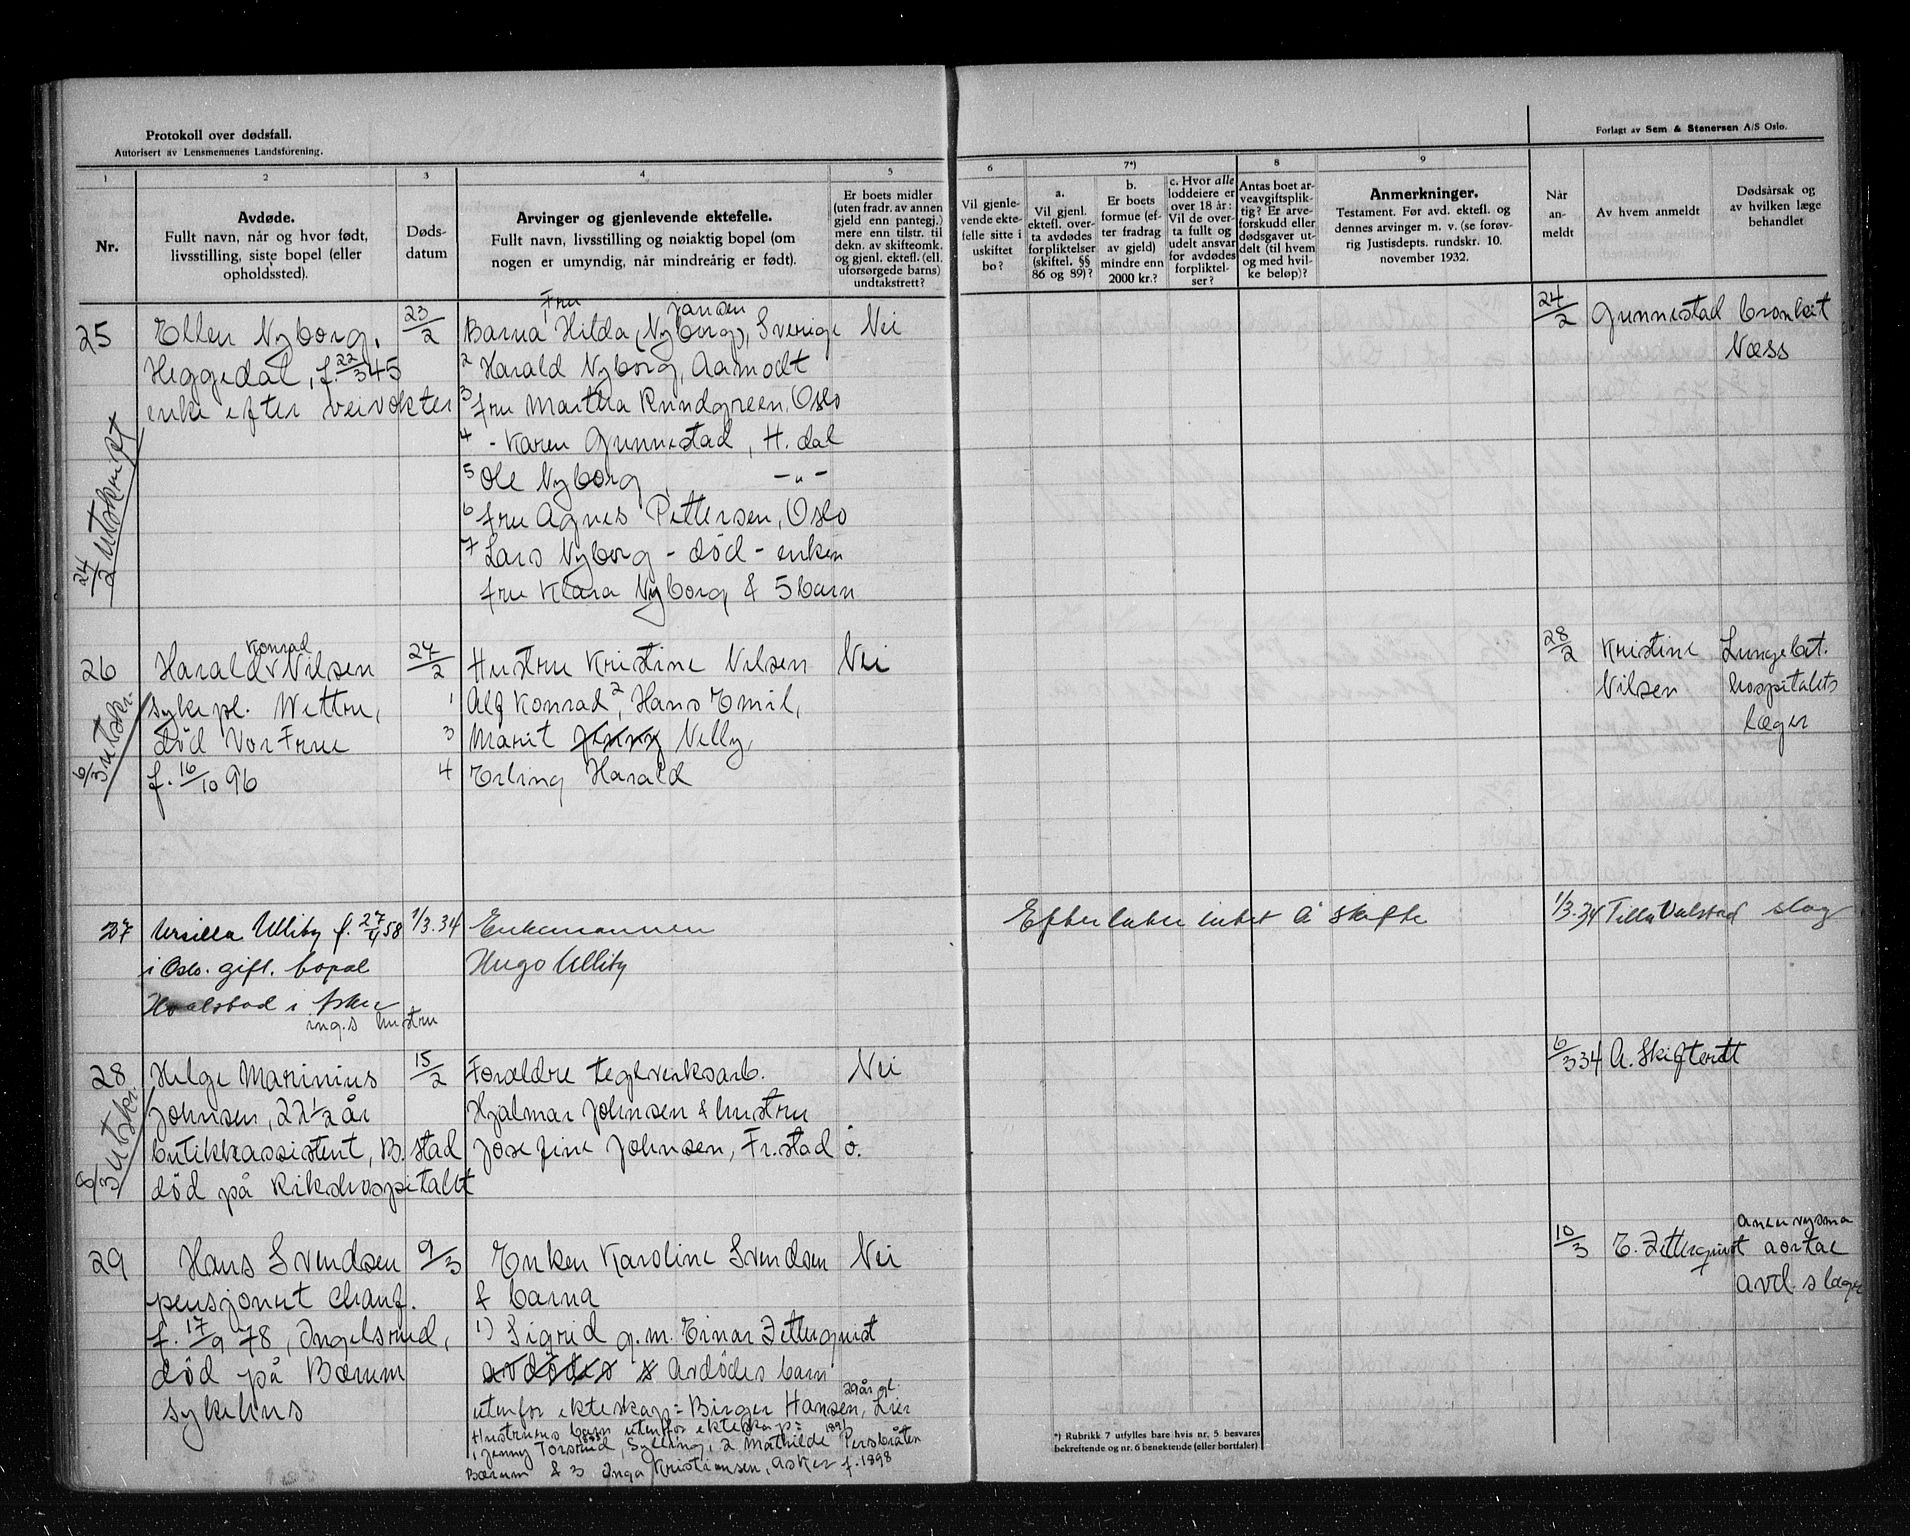 Protokoll over dødsfall.
Autorisert av Lensmennenes Landsforening.
Forlagt av Sem & Stenersen A/S Oslo.
1 2 3 4 5 6 7*) 8 9
Nr.
Avdøde.
Fullt navn, når og hvor født,
livsstilling, siste bopel (eller
opholdssted).
Døds-
datum
Arvinger og gjenlevende ektefelle.
Fullt navn, livsstilling og nøiaktig bopel (om
nogen er umyndig, når mindreårig er født).
Er boets midler
(uten fradr. av annen
gjeld enn pantegj.)
mere enn tilstr. til
dekn. av skifteomk.
og gjenl. ektefl. (ell.
uforsørgede barns)
undtakstrett?
Vil gjenle-
vende ekte-
felle sitte i
uskiftet
bo?
a.
Vil gjenl.
ektefl. over-
ta avdødes
forpliktelser
(skiftel. §§
86 og 89)?
b.
Er boets
formue (ef-
ter fradrag
av gjeld)
mindre enn
2000 kr.?
c. Hvor alle
loddeiere er
over 18 år:
Vil de over-
ta fullt og
udelt ansvar
for avdødes
forpliktel-
ser?
Antas boet ar-
veavgiftsplik-
tig? Er arve-
forskudd eller
dødsgaver ut-
delt (til hvem
og med hvil-
ke beløp)?
Anmerkninger.
Testament. Før avd. ektefl. og
dennes arvinger m. v. (se forøv-
rig Justisdepts. rundskr. 10.
november 1932.
Når
an-
meldt
Av hvem anmeldt
Dødsårsak og
av hvilken læge
behandlet
25
Ellen Nyborg,
Heggedal, f. 22/3 45
enke efter veivokter
24/2 utskrift
23/2
Fru Jansen
Barna Hilda (Nyborg), Sverige
2 Harald Nyborg, Aamodt
3 fru Martha Rundgreen, Oslo
4 - Karen Gunnestad, H.dal
5 Ole Nyborg, -"-
6 fru Agnes Pettersen, Oslo
7 Lars Nyborg - død - enken
fru Klara Nyborg & 5 barn
Nei
24/2
Gunnestad
bronkit
Næss
26
Konrad
Harald Nilsen
sykepl. Wettre,
død Vor Frue
f. 16/10 96
6/3 utskr.
24/2
Hustru Kristine Nilsen
1 Alf Konrad, 2 Hans Emil,
3 Marit Jenny Nelly,
4 Erling Harald
Nei
28/2
Kristine
Nilsen
Lungebet.
hospitalets
læger
27
Ursilla Ulliby f. 27/4 58
i Oslo. gift. bopæl
Hvalstad i Asker
ing.s hustru
1/3.34
Enkemannen
Hugo Ulliby
Efterlater intet å skifte
1/3.34
Tilla Valstad
slag
28
Helge Marinius
Johnsen, 22 1/2 år
butikkassistent, B.stad
død på Rikshospitalet
8/3 utskr.
15/2
Foreldre teglverksarb.
Hjalmar Johnsen & hustru
Josefine Johnsen, Fr.stad ö.
Nei
6/3 34
A. Skifterdt
29
Hans Svendsen
pensjonert chauf.
f. 17/9 78, Ingelsrud,
død på Bærum
sykehus
9/3
Enken Karoline Svendsen
& barna
1) Sigrid g.m. Einar Zetterqvist
avdødes & Avdødes barn
utenfor ekteskap: Birger Hansen, 29 år gl. Lier
Hustruens barn utenfor ekteskap:
1, Jenny Torsrud, Sylling, 2 Mathilde Persbråten 1891
Bærum & 3 Inga Kristiansen, Asker f. 1898
Nei
10/3
E. Zetterqvist
aneurysma
aortae
avd.s læger
*) Rubrikk 7 utfylles bare hvis nr. 5 besvares
bekreftende og nr. 6 benektende (eller bortfaler)